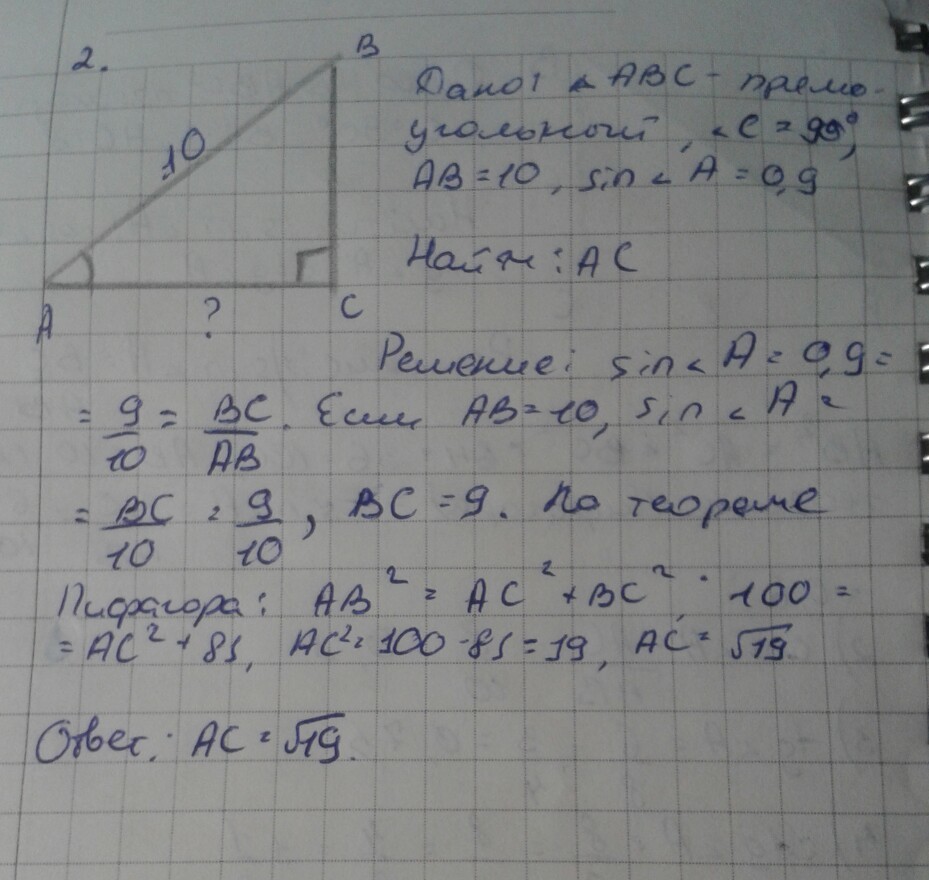 2.
B
10
A
?
C
Дано: ▵ ABC - прямо-
угольный, ∠C = 90°,
AB = 10, sin ∠ A = 0,9
Найти: AC
Решение: sin ∠ A = 0,9 =
= 9/10 = BC/AB. Если AB = 10, sin ∠ A =
= BC/10 = 9/10, BC = 9. По теореме
Пифагора: AB² = AC² + BC²; 100 =
= AC² + 81, AC² = 100 - 81 = 19, AC = √19
Ответ: AC = √19.